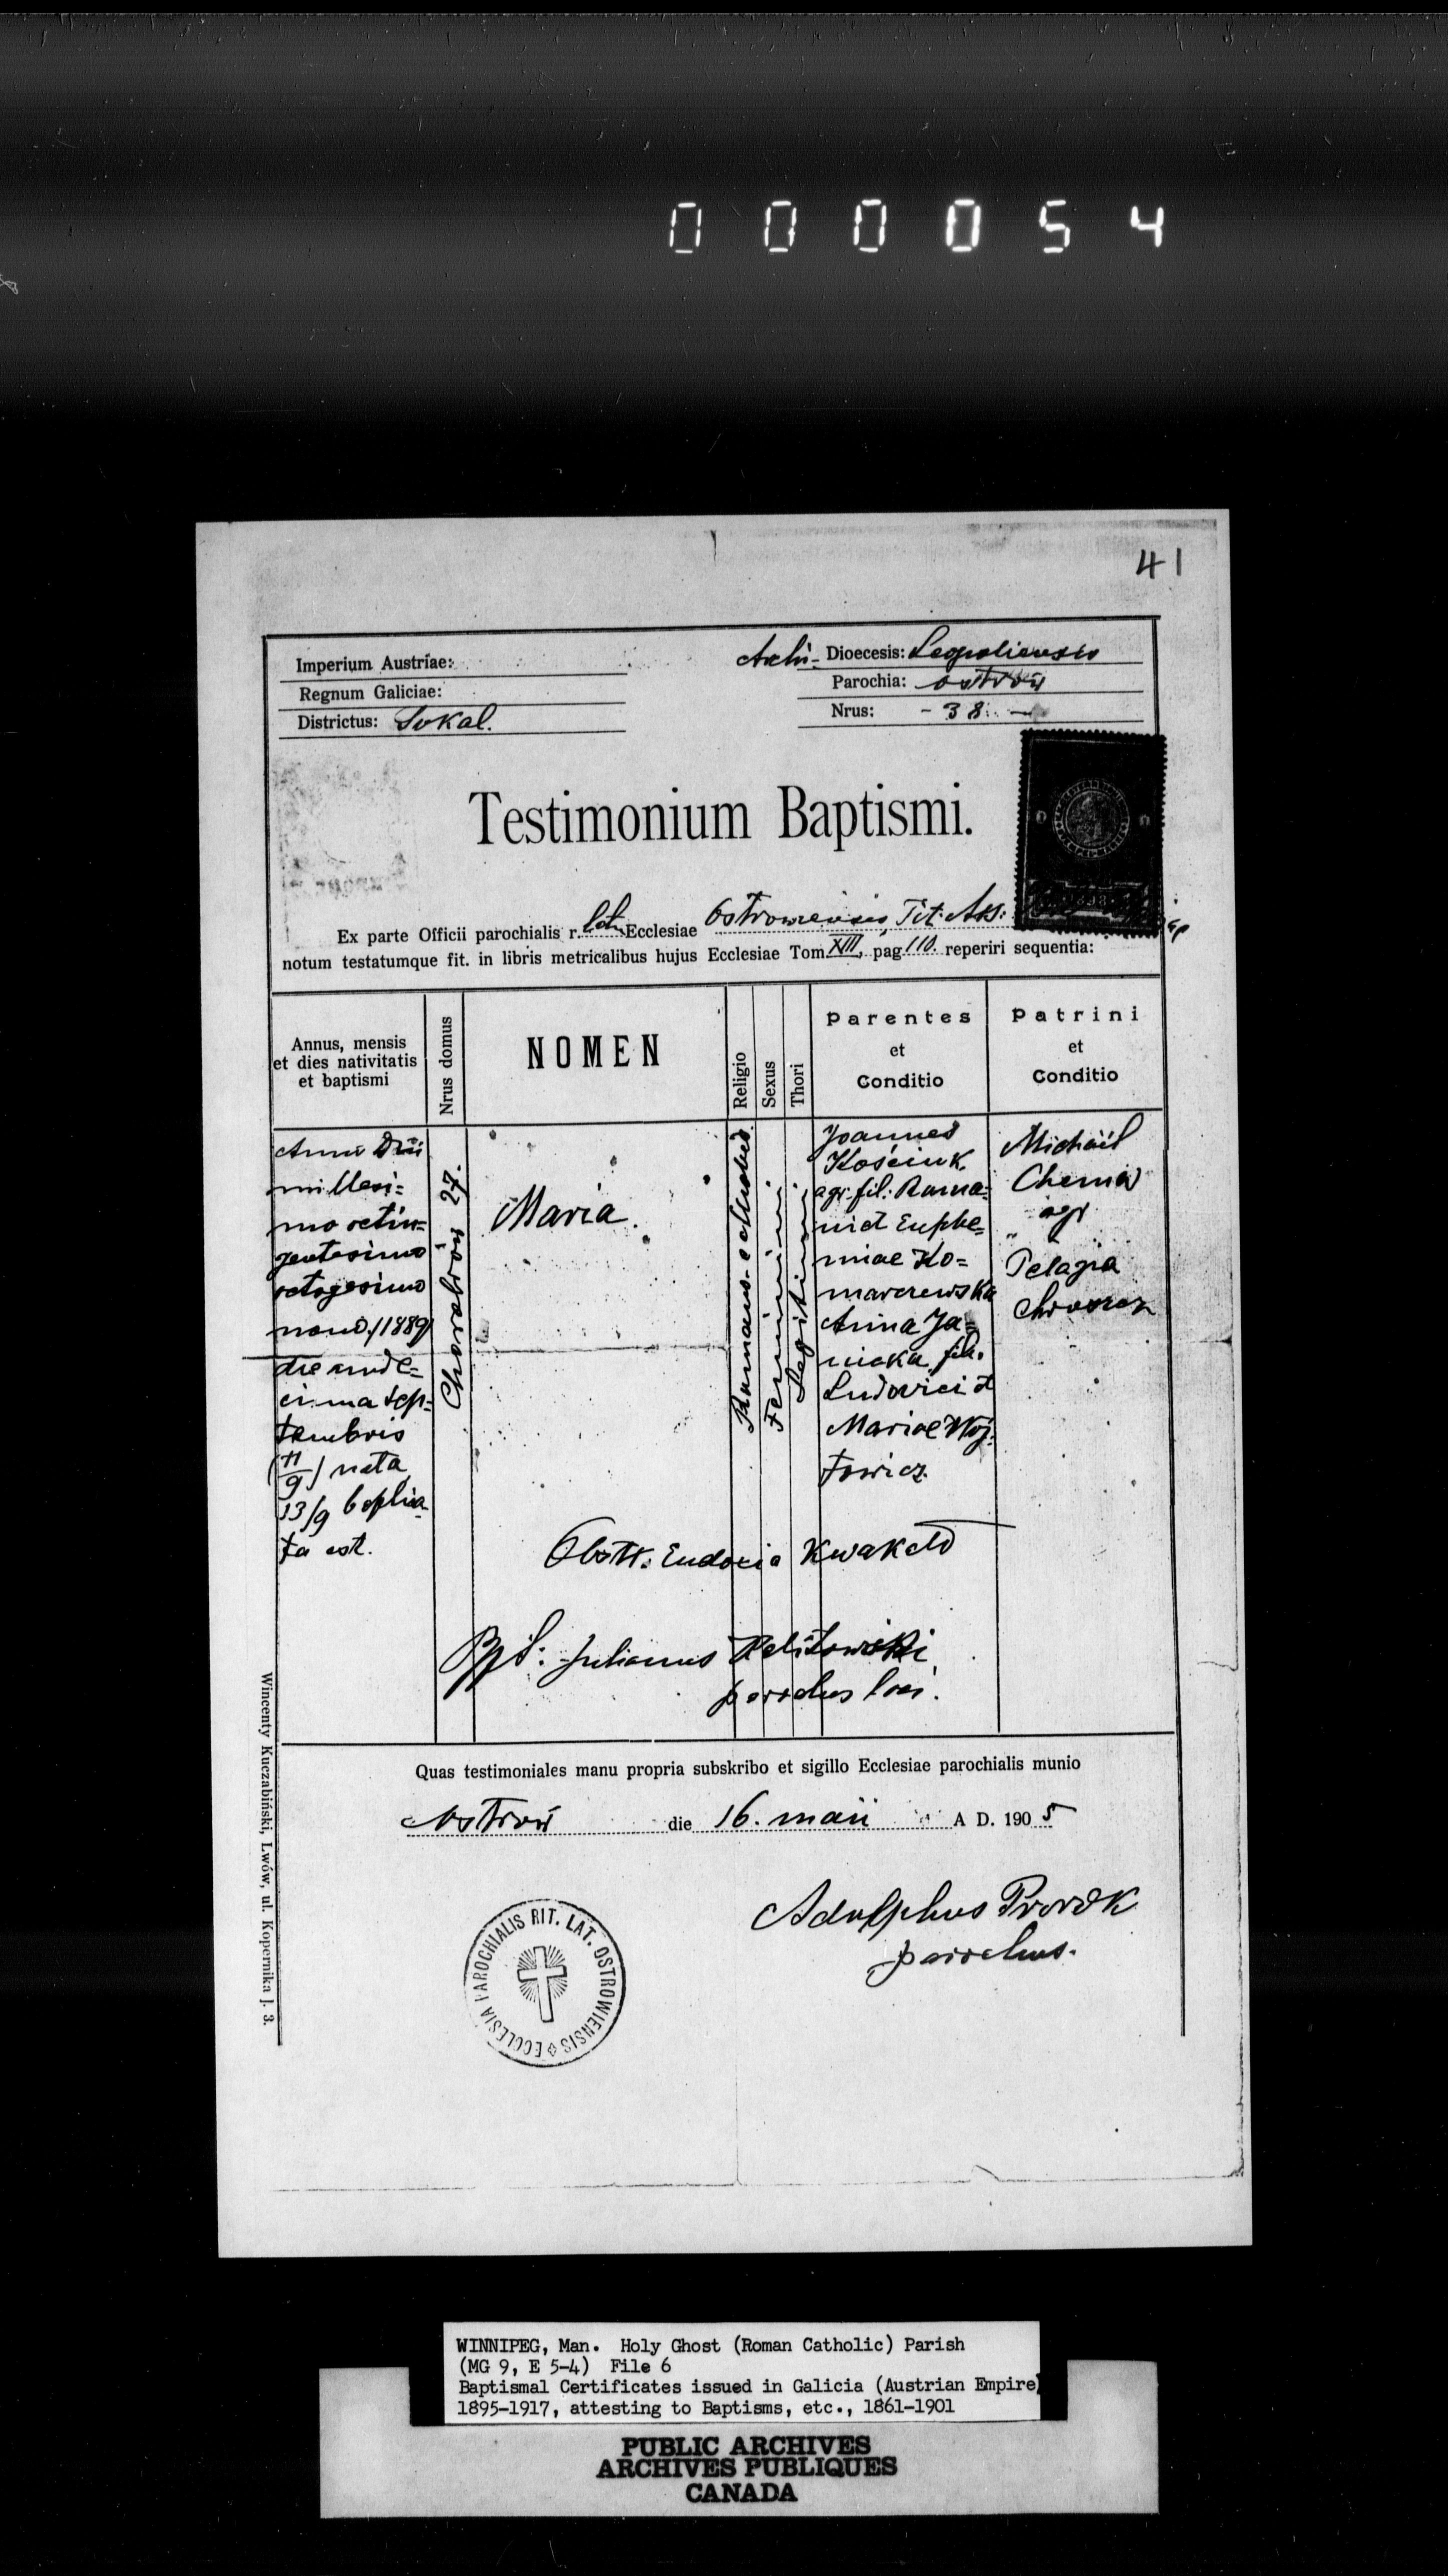 000054
41
Imperium Austriae:
Regnum Galiciae:
Districtus: Sokal.
Archi- Dioecesis: Leopoliensis
Parochia: Ostrów
Nrus: - 38. -
Testimonium Baptismi.
Ex parte Officii parochialis r. lat. Ecclesiae Ostroviensis, Tit.
notum testatumque fit. in libris metricalibus hujus Ecclesiae Tom XIII, pag 110. reperiri sequentia:
Annus, mensis
et dies nativitatis
et baptismi
Nrus domus
NOMEN
Religio
Sexus
Thori
Parentes
et
Conditio
Patrini
et
Conditio
Anno Dni
millesi=
mo octin=
gentesimo
octogesimo
nono /1889/
die unde=
cima sep=
tembris
(11/9) nata
13/9 baptisa=
ta est.
27.
Maria.
Romano-
Feminini
Legitimi
Joannes
Kościuk,
agr. fil. Roma=
ni et Euphe=
miae Ko=
marzewska
Anna Ja=
nicka fil.
Ludovici et
Mariae Wój=
towicz.
Michaël
agr
Pelagia
Obstt. Eudocia
Bpt: Julianus
parochus loci.
Quas testimoniales manu propria subskribo et sigillo Ecclesiae parochialis munio
Ostrów die 16. maii A D. 1905
Adolphus
parochus.
ECCLESIA PAROCHIALIS RIT. LAT. OSTROWIENSIS
Wincenty Kuczabiński, Lwów, ul. Kopernika l. 3.
WINNIPEG, Man. Holy Ghost (Roman Catholic) Parish
(MG 9, E 5-4) File 6
Baptismal Certificates issued in Galicia (Austrian Empire)
1895-1917, attesting to Baptisms, etc., 1861-1901
PUBLIC ARCHIVES
ARCHIVES PUBLIQUES
CANADA